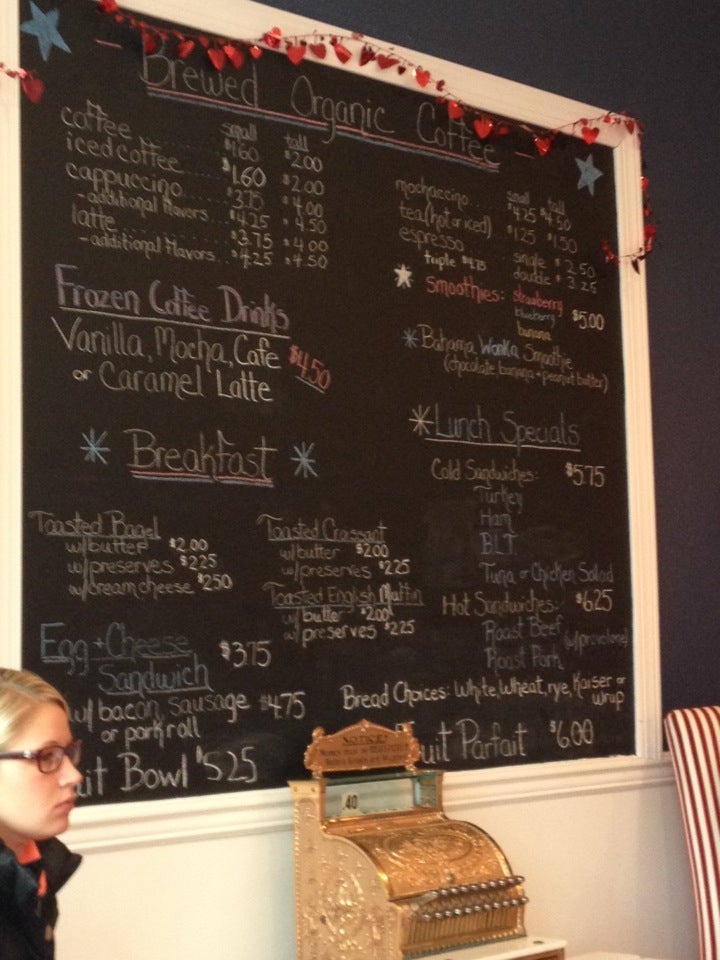 Brewed Organic Coffee
small tall
coffee $1.60 $2.00
iced coffee $1.60 $2.00
cappuccino $3.75 $4.00
-additional flavors $4.25 $4.50
latte $3.75 $4.00
-additional flavors $4.25 $4.50
small tall
mochaccino $4.25 $4.50
tea (hot or iced) $1.25 $1.50
espresso single $2.50
triple $4.75 double $3.25
smoothies: strawberry
blueberry $5.00
banana
Bahama Wonka Smoothie
(chocolate, banana + peanut butter)
Frozen Coffee Drinks
Vanilla, Mocha, Cafe
or Caramel Latte $4.50
Breakfast
Toasted Bagel
w/butter $2.00
w/preserves $2.25
w/cream cheese $2.50
Toasted Croissant
w/butter $2.00
w/preserves $2.25
Toasted English Muffin
w/butter $2.00
w/preserves $2.25
Egg + Cheese
Sandwich $3.75
w/ bacon, sausage $4.75
or pork roll
uit Bowl $5.25
Lunch Specials
Cold Sandwiches: $5.75
Turkey
Ham
BLT
Tuna or Chicken Salad
Hot Sandwiches: $6.25
Roast Beef
Roast Pork (w/provolone)
Bread Choices: White, Wheat, rye, Kaiser or
wrap
uit Parfait $6.00
NOTICE
40